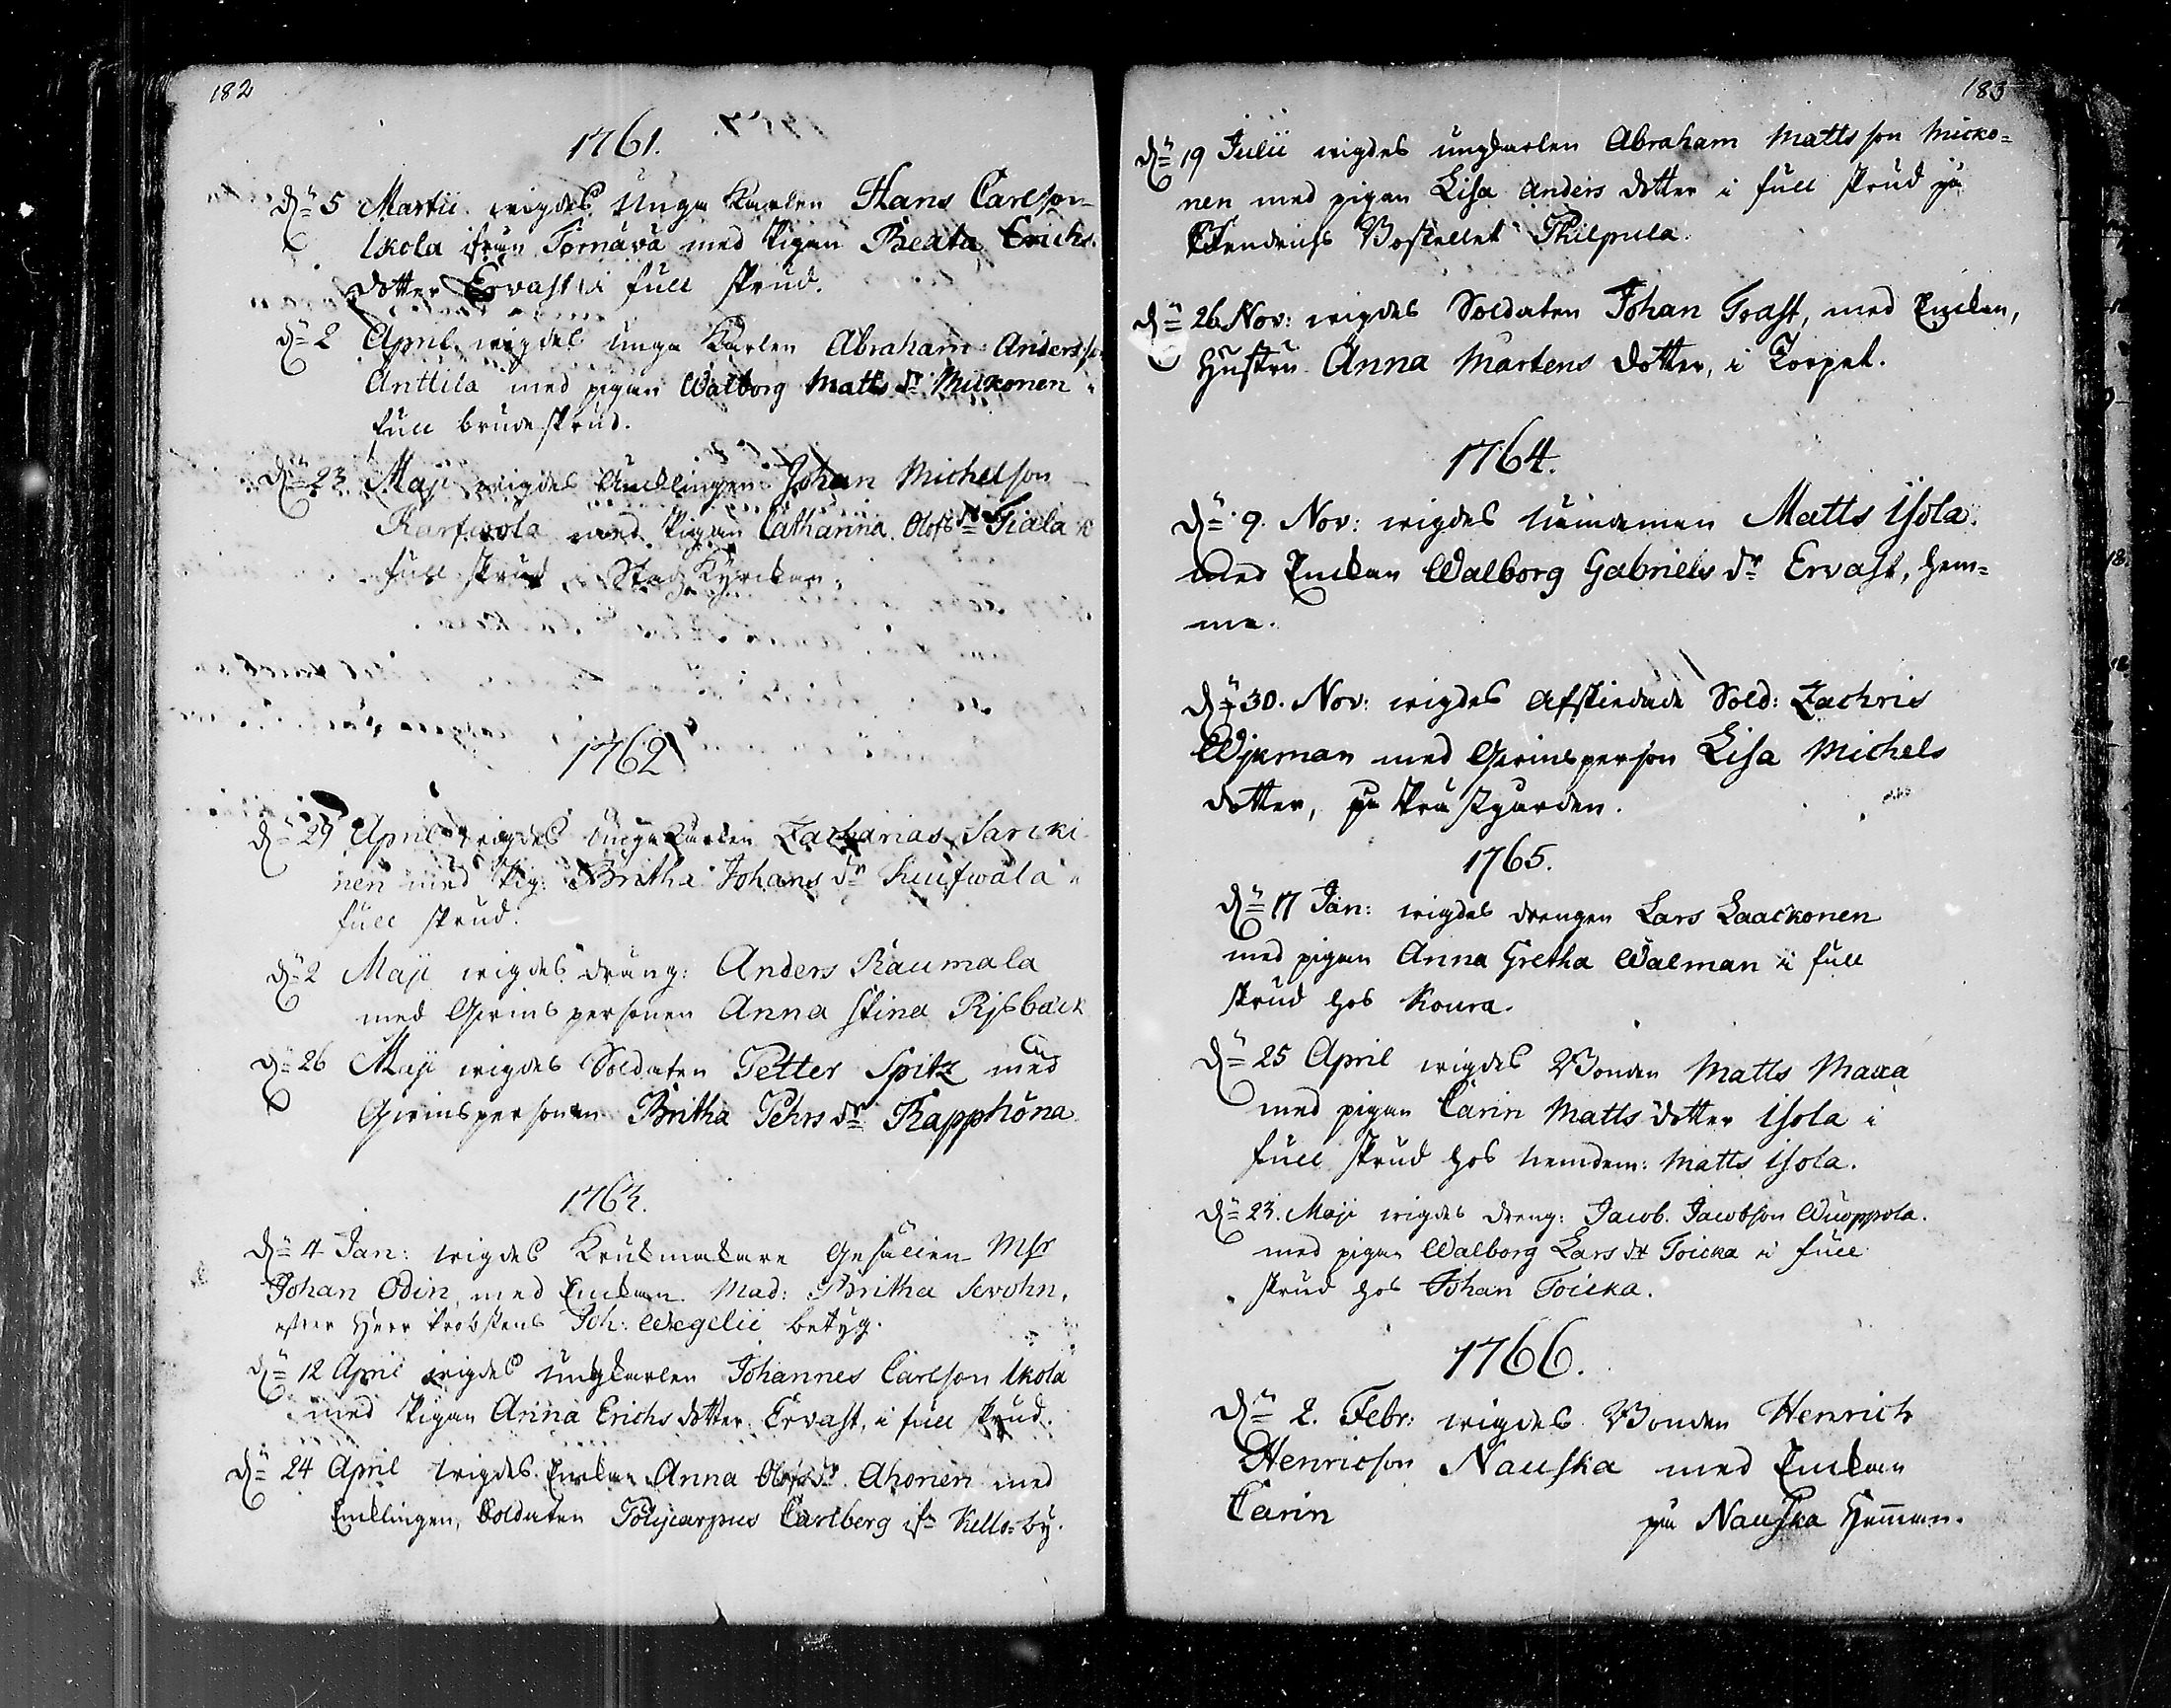 182
1761.
dn 5 Martii wigdes Unga Karlen Hans Carlson
Ikola ifrån Tornävä med Pigan Beata Erichs
dotter Ervast i full skrud.
dn 2 April wigdes unga Karlen Abraham Andersson
Anttila med pigan Walborg Matts dr Mickonen i
full brudeskrud.
dn 23 Maji wigdes Ancklingen Johan Michelson
med Pigan Catharina Olofs dr Tiala i
full skrud, i Stads Kyrckan.
1762
dn 29 April wigdes Unga Karlen Zacharias Sarcki
nen med Pig: Britha Johans dr Kuifwala i
full skrud.
dn 2 Maji wigdes dräng: Anders Raumala
med Qwinspersonen Anna Stina Rjsbäck
dn 26 Maji wigdes Soldaten Petter Spitz med
Qwinspersonen Britha Pehrs dr Rapphöna
1763.
dn 4 Jan: wigdes Krukmakare Gesällen Msr
Johan Odin, med Enckan Mad: Britha Sevohn,
efter Herr Probstens Joh: Wegelii betyg.
dn 12 April wigdes ungkarlen Johannes Carlson Ikola
med Pigan Anna Erichs dotter Ervast, i full skrud.
dn 24 April wigdes Enckan Anna Olofs dr Ahonen med
Encklingen, Soldaten Polycarpus Carlberg ifn Kello-by.
183
dn 19 Julii wigdes ungkarlen Abraham Matts son Micko=
nen med pigan Lisa Anders dotter i full skrud på
Fendrichs Bostellet Philpula.
dn 26 Nov: wigdes Soldaten Johan Trast, med Enckan,
Hustru Anna Mårtens dotter, i Torpet.
1764.
dn 9. Nov: wigdes nämdeman Matts Isola.
med Enckan Walborg Gabriels dr Ervast, hem=
ma.
dn 30. Nov: wigdes afskiedade Sold: Zachris
Wjkman med Qwinsperson Lisa Michels
dotter, på Prästgården.
1765.
dn 17 Jan: wigdes drengen Lars Laackonen
med pigan Anna Gretha Walman i full
skrud hos Koura.
dn 25 April wigdes Bonden Matts Maxa
med pigan Carin Matts dotter Isola i
full skrud hos nemdem: Matts Isola.
dn 23. Maji wigdes dreng: Jacob Jacobson Wuoppola.
med pigan Walborg Lars dr Toicka i full
skrud hos Johan Toicka.
1766.
dn 2. Febr: wigdes Bonden Henrich
Henricson Nauska med Enckan
Carin på Nauska Heman.